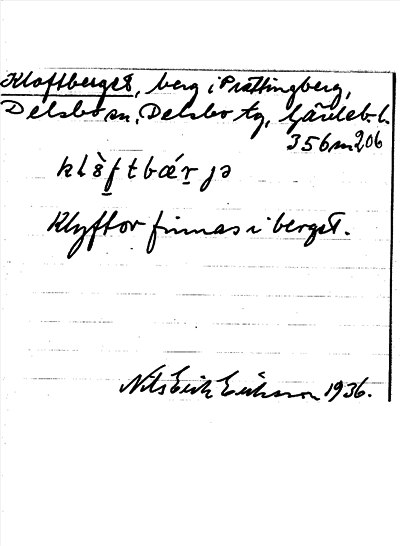 Kloftberget, berg i Prästingberg,
Delsbo sn, Delsbo tg, Gävleb. l.
356 m 206
klöftbærjə
Klyftor finnas i berget.
Nils Erik Eriksson 1936.